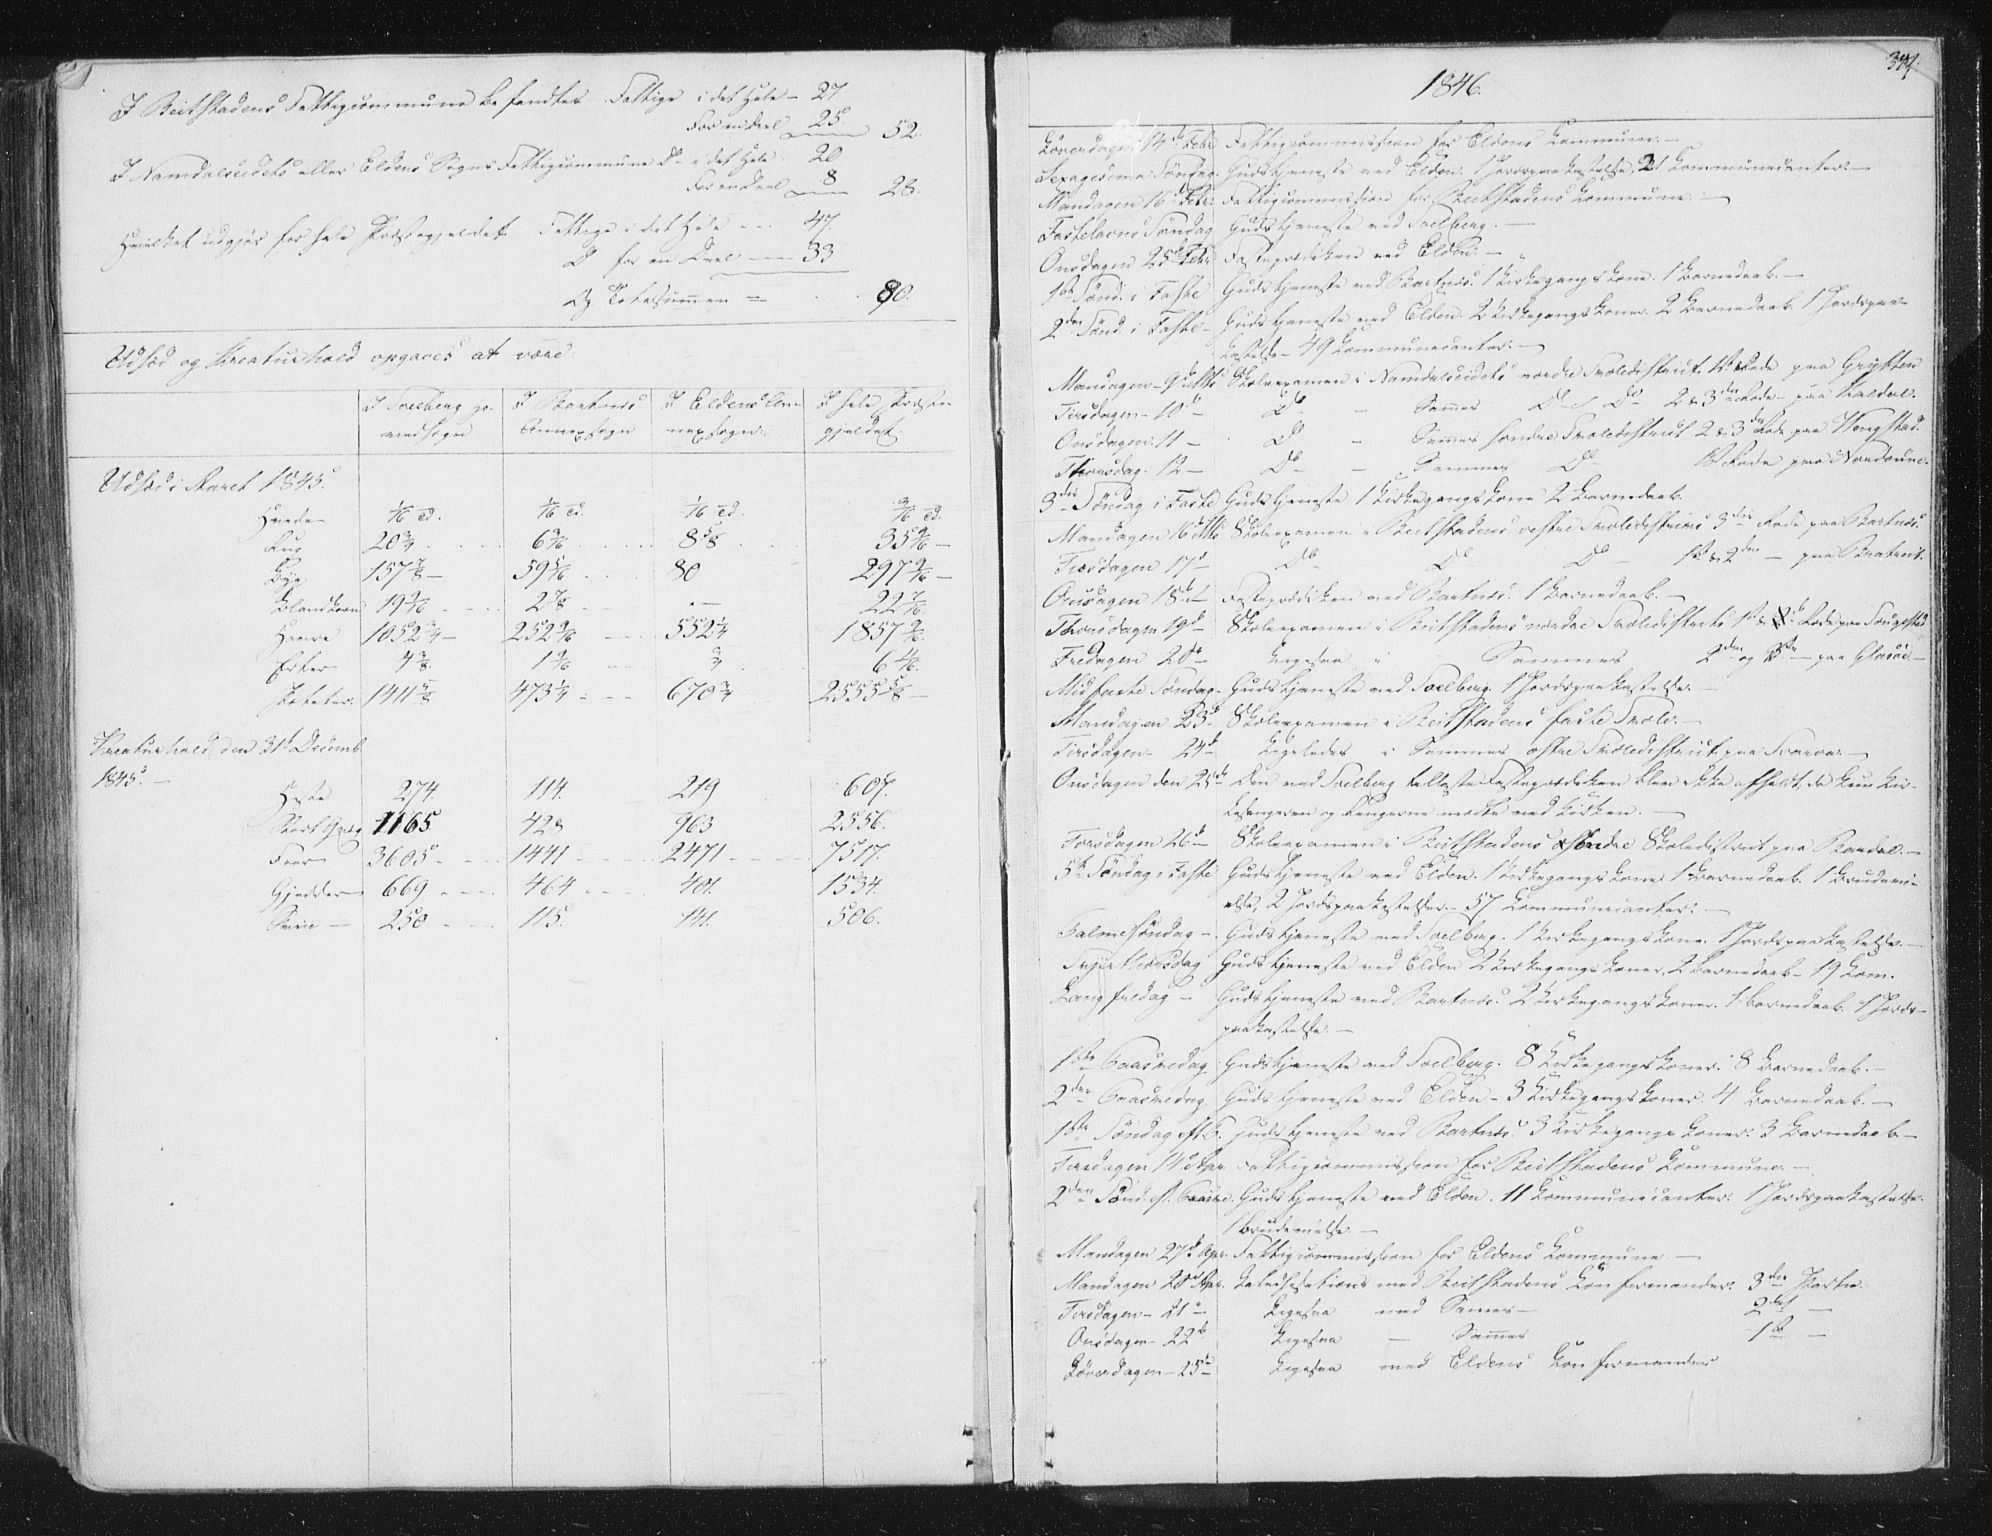 I Beitstadens Fattigcommune befandtes Fattige i det Hele – 27
For en Deel 25 52.
I Namdalseidets eller Eldens Sogns Fattigcommune Do i det Hele 20
For en Deel 8 28.
Hvilket udgjør for hele Præstegjeldet Fattige i det Hele --- 47.
Do for en Deel --- 33
Og Totalsummen = 80.
Udsæd og Kreaturhold opgaves at være:
I Solberg Ho- I Bartnes I Eldens An- I hele Præste
vedsogn Annexsogn nexsogn gjeldet
Udsæd i Aaret 1845.
Hvede 1/16 Td. 1/16 Td. 1/16 Td. 3/16 Td.
Rug 20 3/4 6 3/16 8 5/8 35 9/16 –
Byg 157 7/8 – 59 5/16 80 297 3/16 –
Blandkorn 19 9/16 2 7/8 – 22 7/16
Havre 1052 3/4 – 252 9/16 552 1/4 1857 9/16
Erter 4 3/8 1 9/16 3/4 6 11/16
Poteter 1411 5/8 473 1/4 670 3/4 2555 5/8 –
Kreaturhold den 31 Decemb.
1845. –
Heste 274. 114. 219 607.
Stort Qvæg 1165. 428 963 2556.
Faar 3605 1441 2471 7517.
Gjeder 669 464 401. 1534.
Sviin – 250 115. 141. 506.
1846.
Løverdagen 14de Febr Fattigcommission for Eldens Commune. –
Sexagesima Søndag. Gudstjeneste ved Elden. 1 Jordspaakastelse, 21 Kommunicanter. –
Mandagen 16de Febr. Fattigcommission for Beitstadens Commune. –
Fastelavns Søndag Gudstjeneste ved Solberg. –
Onsdagen 25de Febr Fasteprædiken ved Elden. –
1ste Sønd. i Faste Gudstjeneste ved Bartnes. 1 Kirkegangskone. 1 Barnedaab. –
2den Sønd. i Faste – Gudstjeneste ved Elden. 2 Kirkegangskoner. 2 Barnedaab. 1 Jordspaa-
kastelse – 49 Kommunicanter. –
Mandagen – 9de Mts Skoleexamen i Namdalseidets nordre Skoledistrict 1ste Rode paa
Tirsdagen – 10de – Do – Sammes Do Do 2 & 3die Rode – paa Kaldal.
Onsdagen 11 – Do – Sammes søndre Skoledistrict 2 & 3die Rode paa
Thorsdag. 12 – Do – Sammes Do 1ste Rode paa
3die Søndag i Faste Gudstjeneste 1 Kirkegangskone 2 Barnedaab.
Mandagen 16de Mts Skoleexamen i Beitstadens vestre Skoledistricts 3die Rode paa Bartnes.
Tirsdagen 17de – Do Do Do – 1ste & 2den – paa
Onsdagen 18de – Fasteprædiken ved Bartnes. 1 Barnedaab. –
Thorsdagen 19de – Skoleexamen i Beitstadens nordre Skoledistricts 1ste Rode paa
Fredagen 20de – Ligesaa i Sammes 2den og 3die – paa
Midfaste Søndag – Gudstjeneste ved Solberg. 1 Jordspaakastelse. –
Mandagen 23de Skoleexamen i Beitstadens faste Skole. –
Tirsdagen – 24de Ligeledes i Sammes østre Skoledistrict paa
Onsdagen den 25de Den ved Solberg Fasteprædiken blev ikke afholdt, da kun Kir-
kesangeren og mødte ved Kirken. –
Torsdagen 26de – Skoleexamen i Beitstadens søndre Skoledistrict paa
5te Søndag i Faste Gudstjeneste ved Elden. 1 Kirkegangskone 1 Barnedaab. 1 Brudevi-
else, 2 Jordspaakastelser. – 57 Kommunicanter. –
Palmesøndag – Gudstjeneste ved Solberg. 1 Kirkegangskone. 1 Jordspaakastelse. –
Skjærthorsdag Gudstjeneste ved Elden 2 Kirkegangskoner, 2 Barnedaab – 19 Kom.
Langfredag – Gudstjeneste ved Bartnes. 2 Kirkegangskoner. 1 Barnedaab. 1 Jords-
paakastelse. –
1ste Paaskedag Gudstjeneste ved Solberg. 8 Kirkegangskoner. 8 Barnedaab. –
2den Paaskedag. Gudstjeneste ved Elden – 3 Kirkegangskoner. 4 Barnedaab. –
1ste Søndag eft. P. Gudstjeneste ved Bartnes. 3 Kirkegangskoner. 3 Barnedaab –
Tirsdagen 14de Apr. Fattigcommission for Beitstadens Commune. –
2den Sønd. ef. Paaske. Gudstjeneste ved Elden. 11 Kommunicanter. 1 Jordspaakastelse.
1 Brudevielse. –
Mandagen 27de Apr. Fattigcommission for Eldens Commune –
Mandagen 20de Apr. Katechisation med Beitstadens Konfirmander. 3die Partie
Tirsdagen – 21 – Ligesaa med Sammes – 2det –
Onsdagen – 22de Ligesaa – Sammes 1ste –
Løverdagen – 25de Ligesaa med Eldens Konfirmander